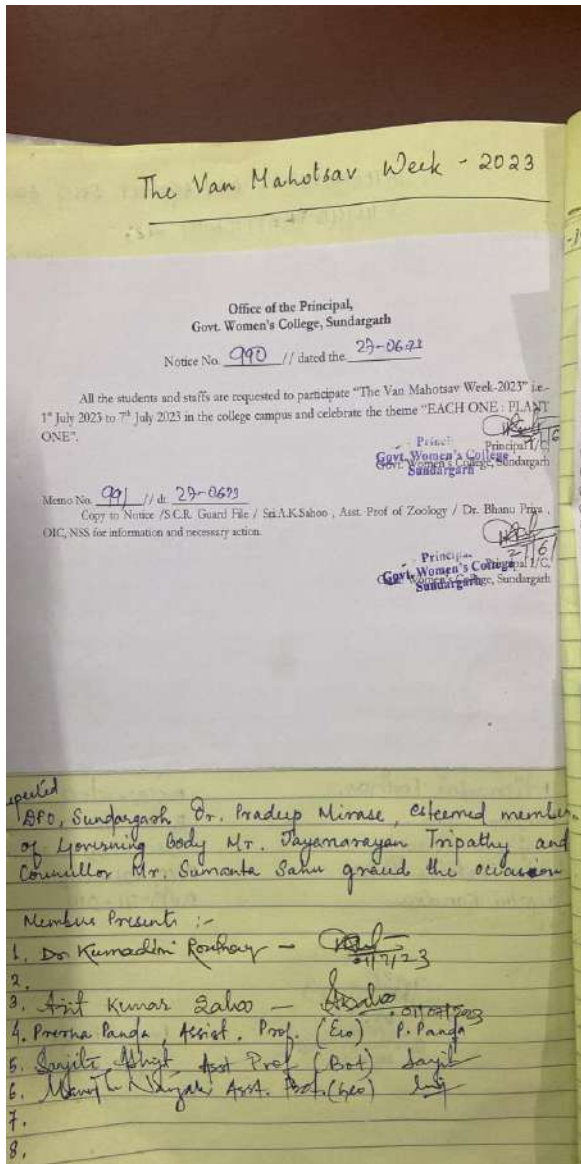 The Van Mahotsav Week - 2023
Office of the Principal,
Govt. Women's College, Sundargarh
Notice No. 990 // dated the 27-06-23
All the students and staffs are requested to participate "The Van Mahotsav Week-2023" i.e.-
1st July 2023 to 7th July 2023 in the college campus and celebrate the theme "EACH ONE : PLANT
ONE".
Principal I/C,
Govt. Women's College, Sundargarh
Govt. Women's College
Sundargarh
Memo No. 991 // dt. 27-0623
Copy to Notice /S.C.R. Guard File / Sri.A.K.Sahoo , Asst. Prof of Zoology / Dr. Bhanu Priya ,
OIC, NSS for information and necessary action.
27/6/
Principal I/C,
Women's College, Sundargarh
Govt. Women's College
Sundargarh
DFO, Sundargarh Dr. Pradeep Mirase, esteemed member
of Governing Body Mr. Jayanarayan Tripathy and
Councillor Mr. Sumanta Sahu graced the occasion
Members Presents :-
1. Dr. Kumadini -
01/7/23
2.
3. Ajit Kumar Sahoo - 01/07/2023
4. Prerna Panda, Assist. Prof. (Eco) P. Panda
5. Asst Prof (Bot)
6. Asst. Prof. (Geo)
7.
8.